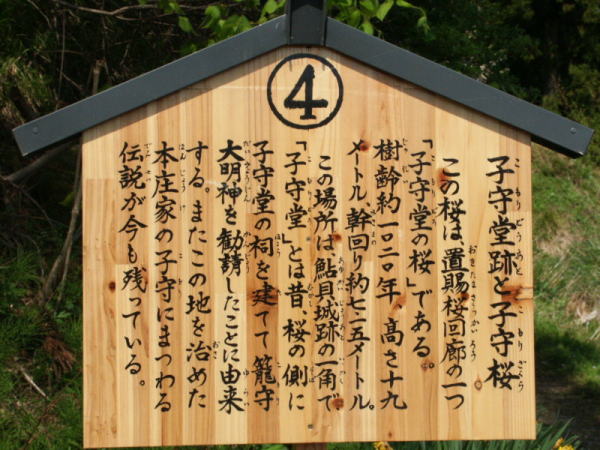 ④
子守堂跡と子守桜
この桜は置賜桜回廊の一つ
「子守堂の桜」である。
樹齢約一〇二〇年 高さ十九
メートル、幹回り約七・二五メートル。
この場所は鮎貝城跡の一角で
「子守堂」とは昔、桜の側に
子守堂の祠を建てて籠守
大明神を勧請したことに由来
する。またこの地を治めた
本庄家の子守にまつわる
伝説が今も残っている。